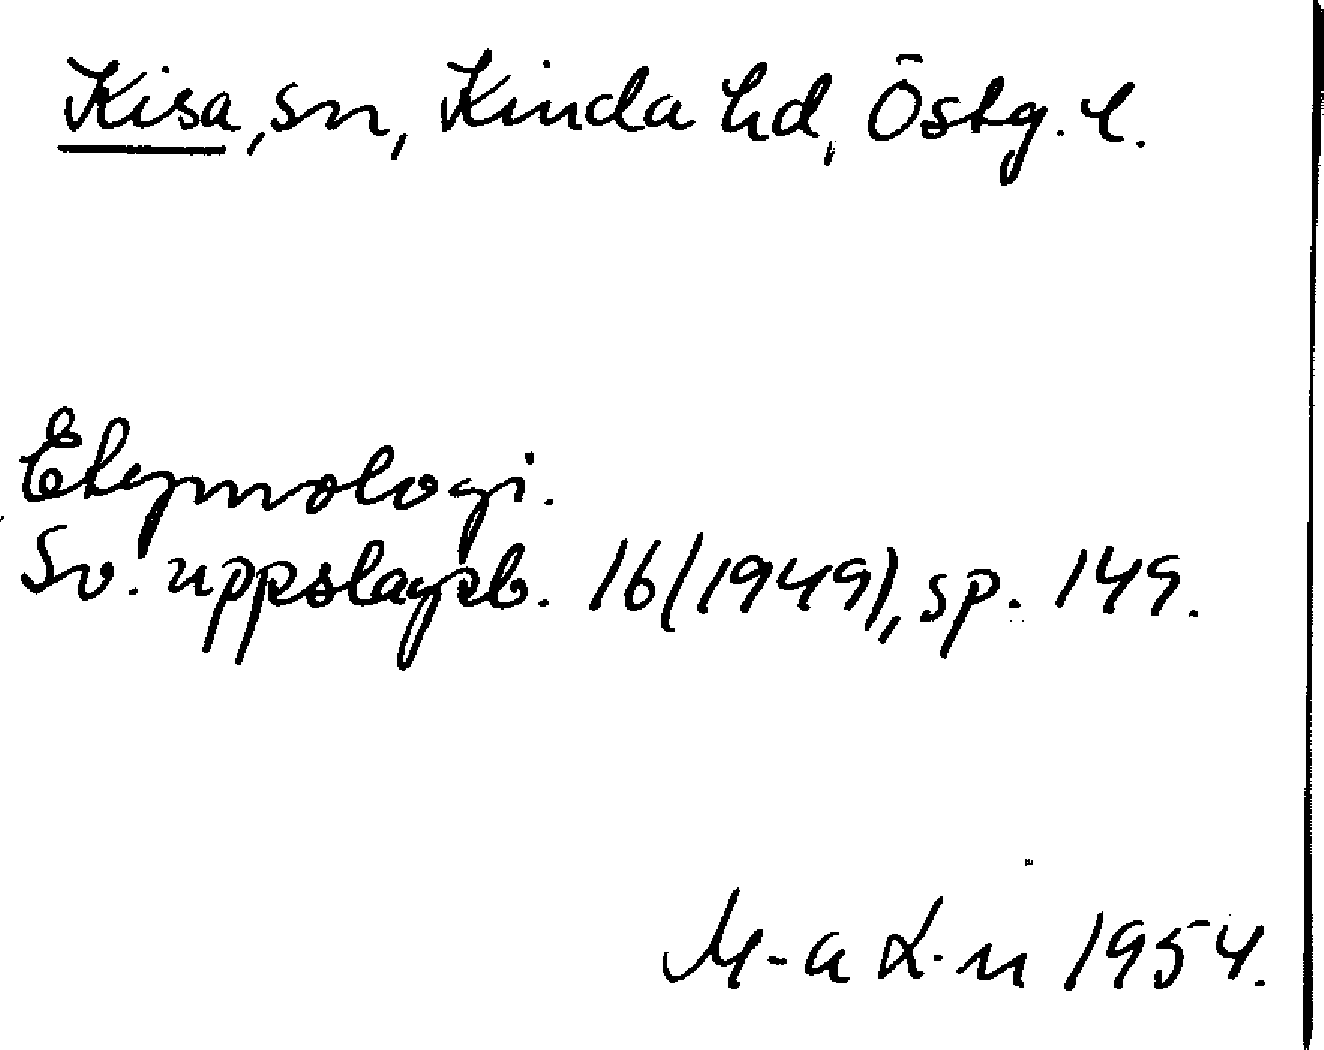 Kisa, sn, Kinda hd, Östg. l.
Etymologi.
Sv. uppslagsb. 16(1949), sp. 149.
M-a L-n 1954.